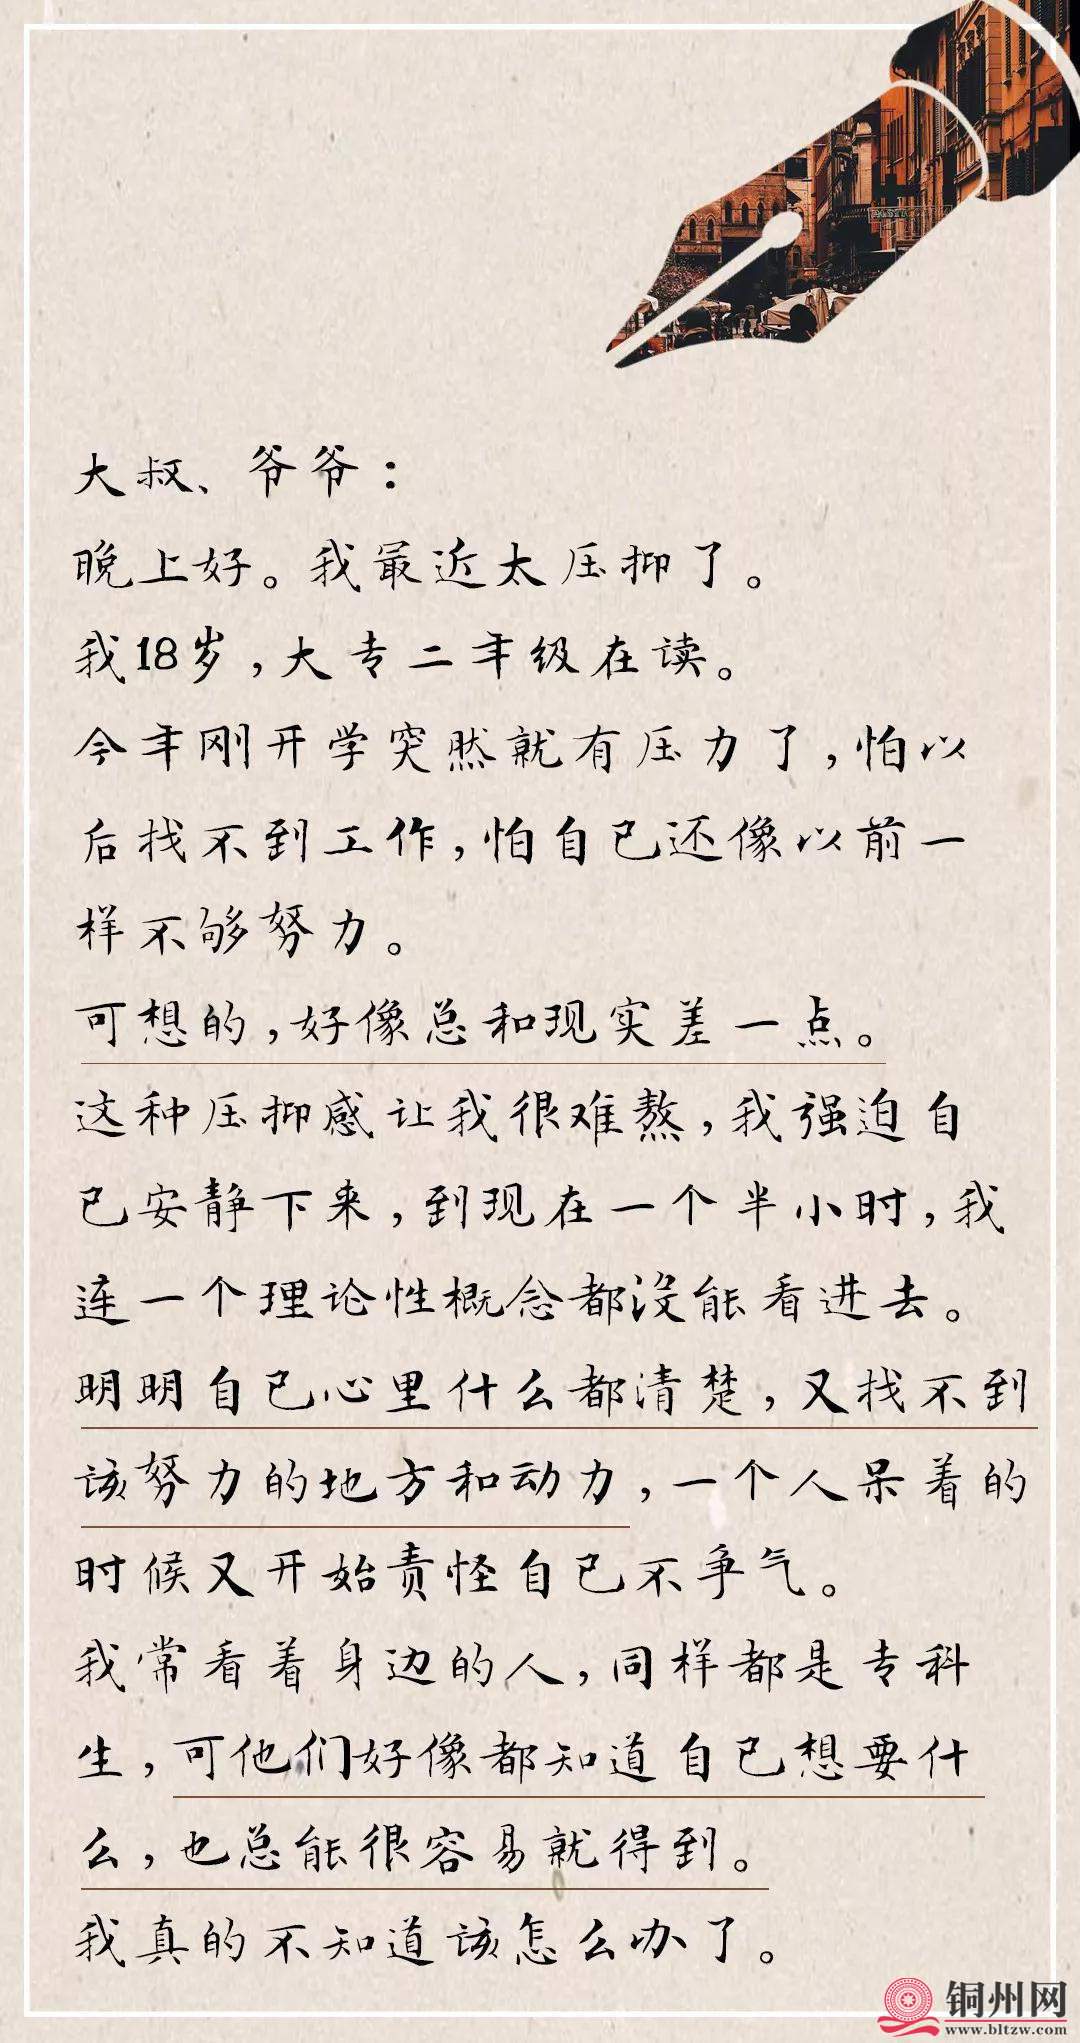 大叔、爷爷：
晚上好。我最近太压抑了。
我18岁，大专二年级在读。
今年刚开学突然就有压力了，怕以
后找不到工作，怕自己还像以前一
样不够努力。
可想的，好像总和现实差一点。
这种压抑感让我很难熬，我强迫自
己安静下来，到现在一个半小时，我
连一个理论性概念都没能看进去。
明明自己心里什么都清楚，又找不到
该努力的地方和动力，一个人呆着的
时候又开始责怪自己不争气。
我常看着身边的人，同样都是专科
生，可他们好像都知道自己想要什
么，也总能很容易就得到。
我真的不知道该怎么办了。
铜州网
www.bltzw.com